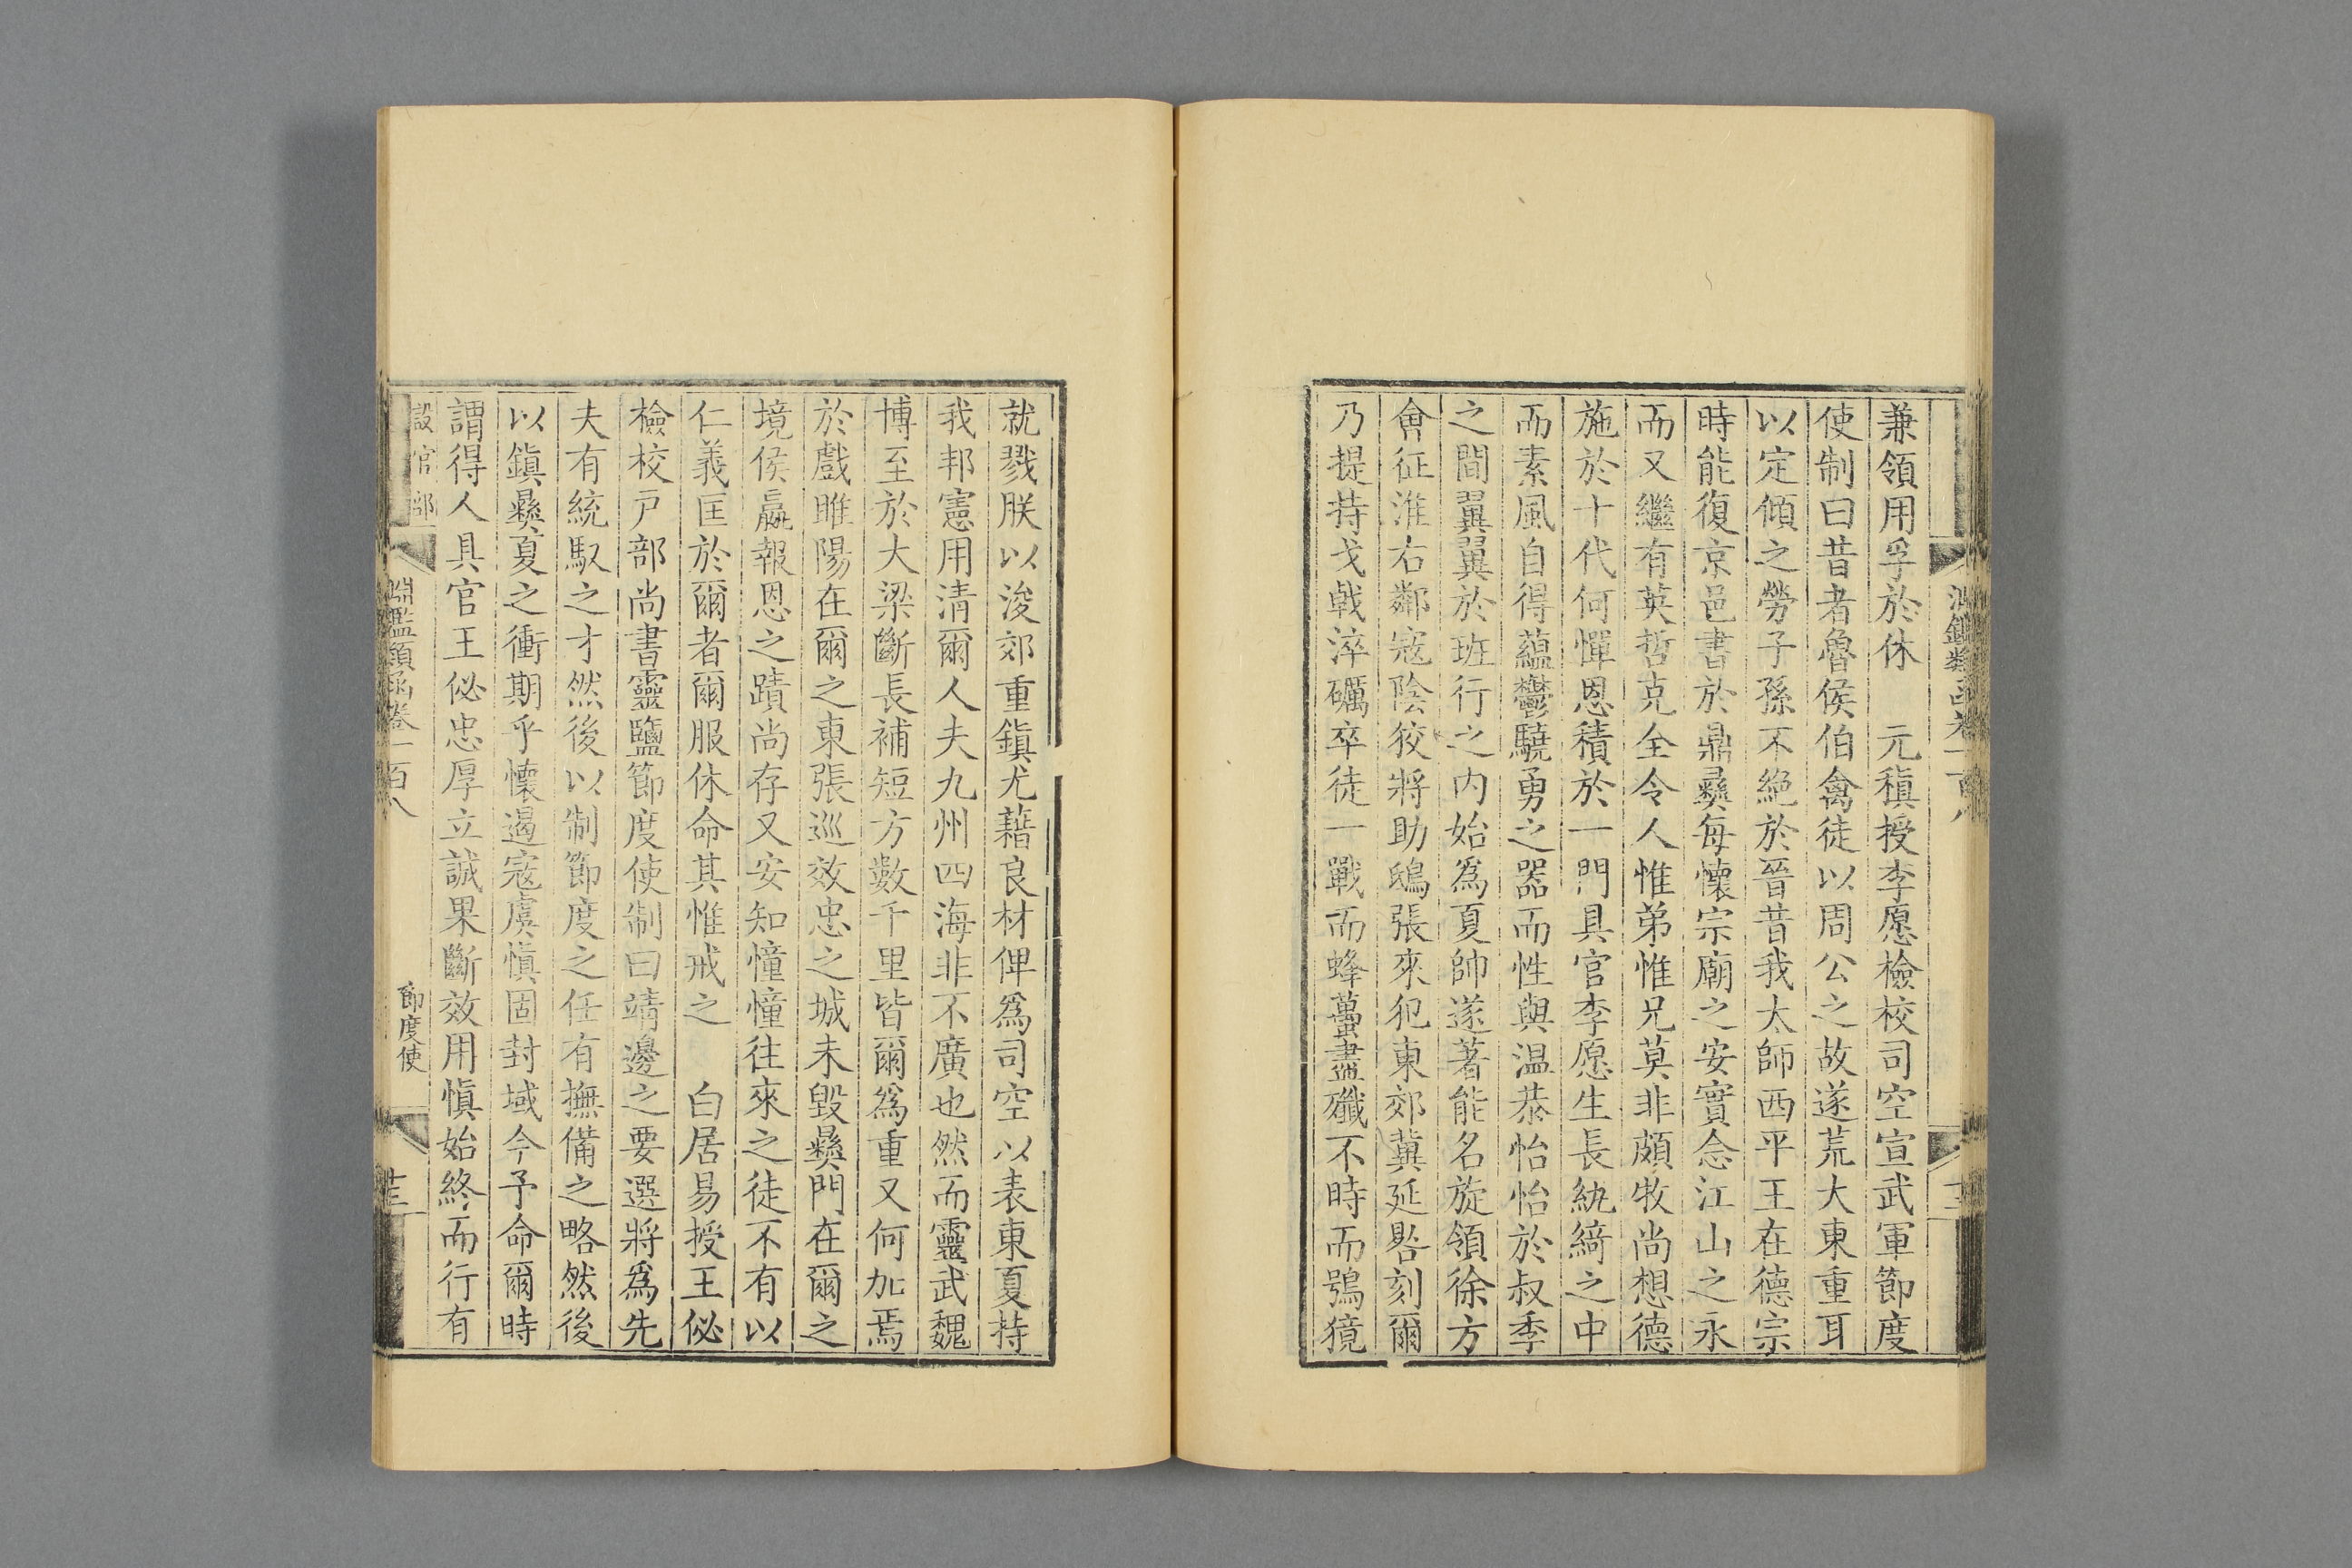 兼領用孚於休　元稹授李愿檢校司空宣武軍節度
使制曰昔者魯侯伯禽徒以周公之故遂荒大東重耳
以定傾之勞子孫不絶於晉昔我太師西平王在德宗
時能復京邑書於鼎彝每懷宗廟之安實念江山之永
而又繼有英哲克全令人惟弟惟兄莫非頗牧尚想德
施於十代何憚恩積於一門具官李愿生長紈綺之中
而素風自得蘊鬱驍勇之器而性與温恭怡怡於叔季
之間翼翼於班行之内始爲夏帥遂著能名旋領徐方
會征淮右鄰寇陰狡將助鴟張來犯東郊冀延晷刻爾
乃提持戈戟淬礪卒徒一戰而蜂蠆盡殲不時而鴞獍
就戮朕以浚郊重鎭尤藉良材俾爲司空以表東夏持
我邦憲用清爾人夫九州四海非不廣也然而靈武魏
博至於大梁斷長補短方數千里皆爾爲重又何加焉
於戲睢陽在爾之東張巡效忠之城未毀彝門在爾之
境侯嬴報恩之蹟尚存又安知憧憧往來之徒不有以
仁義匡於爾者爾服休命其惟戒之　白居易授王佖
檢校戸部尚書靈鹽節度使制曰靖邊之要選將爲先
夫有統馭之才然後以制節度之任有撫備之略然後
以鎭彝夏之衝期乎懷遏寇虞愼固封域今予命爾時
謂得人具官王佖忠厚立誠果斷效用愼始終而行有
設官部　淵鑑類函卷一百八　節度使